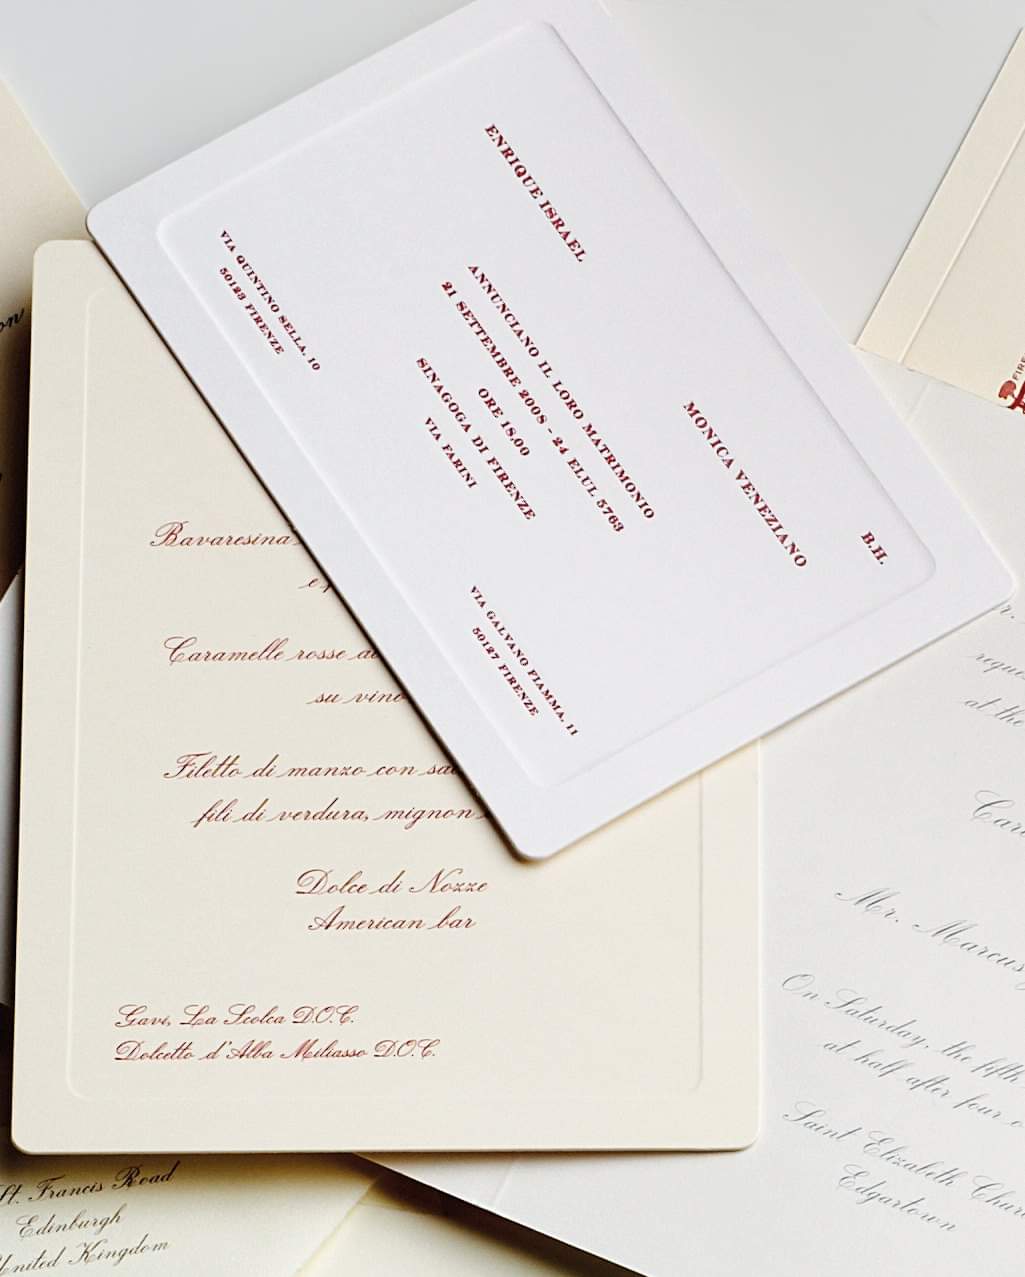 B.H.
ENRIQUE ISRAEL
MONICA VENEZIANO
ANNUNCIANO IL LORO MATRIMONIO
21 SETTEMBRE 2008 - 24 ELUL 5763
ORE 18,00
SINAGOGA DI FIRENZE
VIA FARINI
VIA QUINTINO SELLA, 10
50123 FIRENZE
VIA GALVANO FIAMMA, 11
50127 FIRENZE
Bavaresina
e
Caramelle rosse
su vino
Filetto di manzo con
fili di verdura, mignon
Dolce di Nozze
American bar
Gavi, La Scolca D.O.C.
Dolcetto d'Alba Miliasso D.O.C.
St. Francis Road
Edinburgh
United Kingdom
at the
Mr. Marcus
On Saturday, the fifth
at half after four
Saint Elizabeth
Edgartown